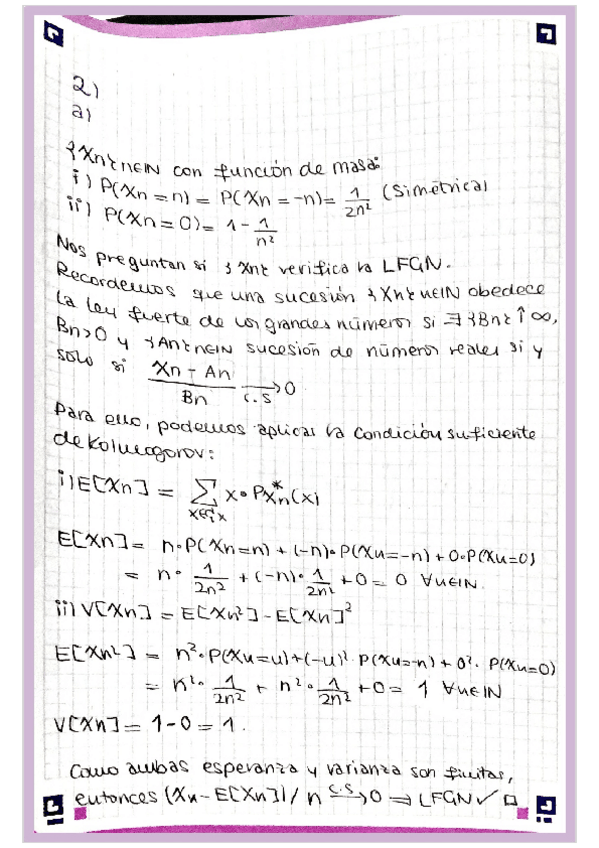 2)
a)
{Xn} n∈IN con función de masa:
i) P(Xn = n) = P(Xn = -n) = 1/2n² (Simétrica)
ii) P(Xn = 0) = 1 - 1/n²
Nos preguntan si {Xn} verifica la LFGN.
Recordemos que una sucesión {Xn} n∈IN obedece
la ley fuerte de los grandes números si ∃ {Bn} ↑ ∞,
Bn>0 y {An} n∈IN sucesión de números reales si y
solo si (Xn - An)/Bn →c.s 0
Para ello, podemos aplicar la condición suficiente
de Kolmogorov:
i) E[Xn] = Σ x∈ x • P*xn(x)
E[Xn] = n•P(Xn=n) + (-n)•P(Xn=-n) + 0•P(Xn=0)
= n• 1/2n² + (-n)• 1/2n² + 0 = 0 ∀n∈IN.
ii) V[Xn] = E[Xn²] - E[Xn]²
E[Xn²] = n²•P(Xn=n) + (-n)²•P(Xn=-n) + 0²•P(Xn=0)
= n²• 1/2n² + n²• 1/2n² + 0 = 1 ∀n∈IN
V[Xn] = 1-0 = 1.
Como ambas esperanza y varianza son finitas,
entonces (Xn - E[Xn])/n →c.s 0 ⇒ LFGN ✓ □